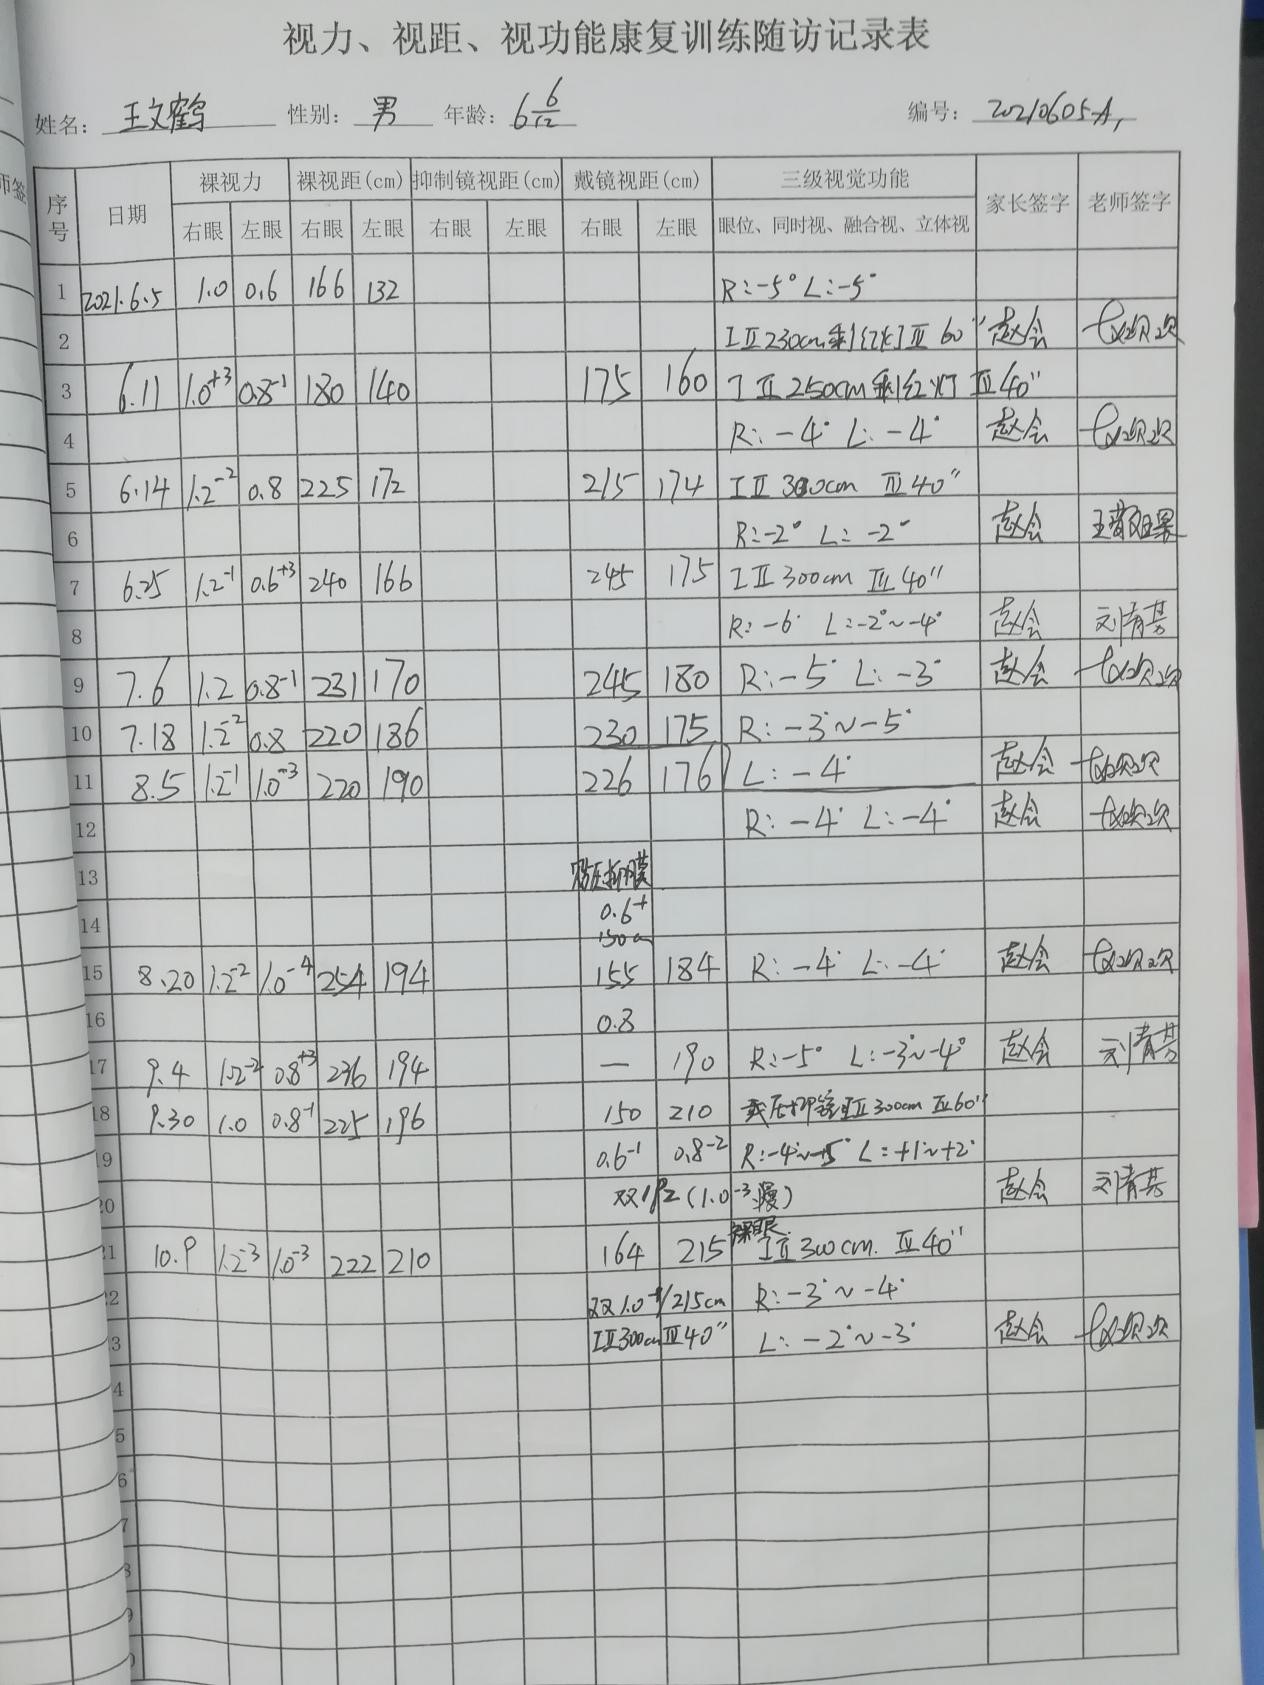 视力、视距、视功能康复训练随访记录表
姓名: 王文鹤 性别: 男 年龄: 6 6/12 编号: 20210605-A1
序号 日期 裸视力 裸视距(cm) 抑制镜视距(cm) 戴镜视距(cm) 三级视觉功能 家长签字 老师签字
右眼 左眼 右眼 左眼 右眼 左眼 右眼 左眼 眼位、同时视、融合视、立体视
1 2021.6.5 1.0 0.6 166 132 R:-5° L:-5°
2 I II 230cm剩红灯 III 60" 赵会
3 6.11 1.0+3 0.8-1 180 140 175 160 I II 250cm剩红灯 III 40"
4 R:-4° L:-4° 赵会
5 6.14 1.2-2 0.8 225 172 215 174 I II 300cm III 40"
6 R:-2° L:-2° 赵会
7 6.25 1.2-1 0.6+3 240 166 245 175 I II 300cm III 40"
8 R:-6° L:-2°~-4° 赵会 刘青芸
9 7.6 1.2 0.8-1 231 170 245 180 R:-5° L:-3° 赵会
10 7.18 1.2-2 0.8 220 186 230 175 R:-3°~-5°
11 8.5 1.2-1 1.0-3 220 190 226 176 L:-4° 赵会
12 R:-4° L:-4° 赵会
13
14 0.6+
150cm
15 8.20 1.2-2 1.0-4 254 194 155 184 R:-4° L:-4° 赵会
16 0.8
17 9.4 1.2-2 0.8+3 236 194 — 190 R:-5° L:-3°~-4° 赵会 刘青芸
18 9.30 1.0 0.8-1 225 196 150 210 I II 300cm III 60"
19 0.6-1 0.8-2 R:-4°~-5° L:+1°~+2°
20 双1.2(1.0-3慢) 赵会 刘青芸
裸眼
21 10.9 1.2-3 1.0-3 222 210 164 215 I II 300cm. III 40"
22 双1.0-1/215cm R:-3°~-4°
3 I II 300cm III 40" L:-2°~-3° 赵会
4
5
6
7
8
9